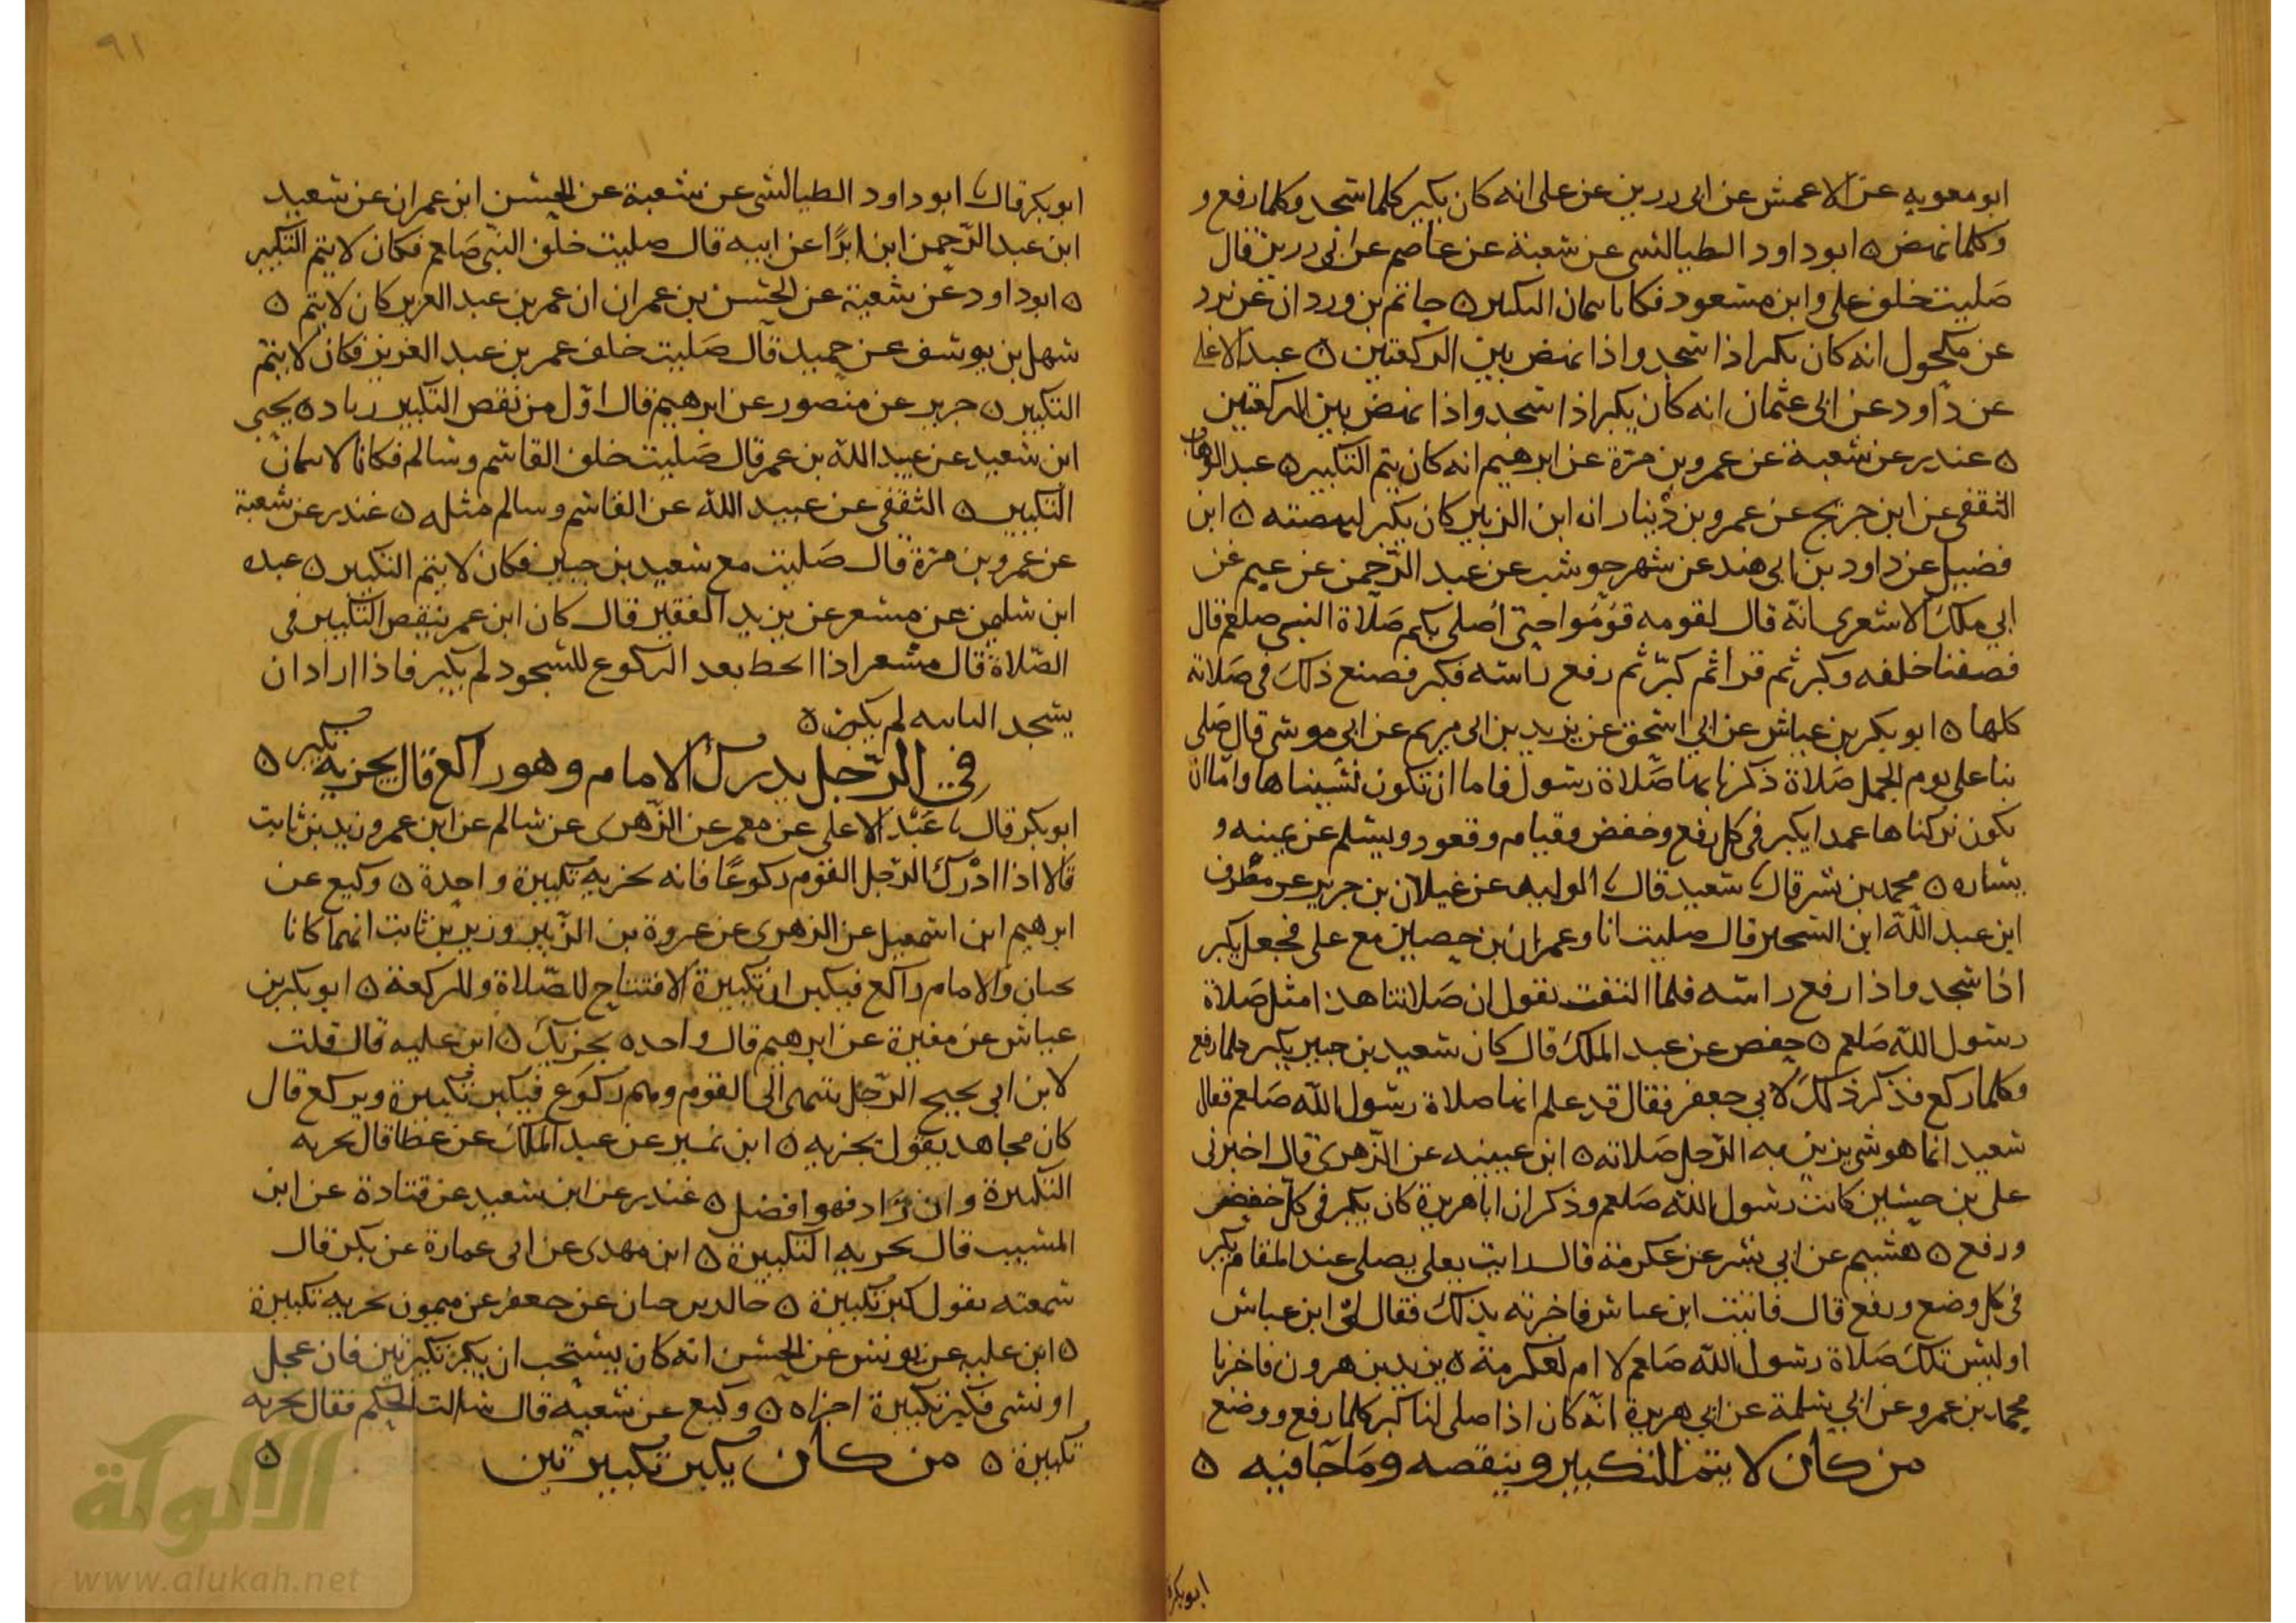 ابو معويه عن الاعمش عن ابي رزين عن علي انه كان يكبر كلما سجد وكلما رفع و
وكلما نهض ه ابو داود الطيالسي عن شعبة عن عاصم عن ابي رزين قال
صليت خلف علي وابن مسعود فكانا يتمان التكبير ه حاتم بن وردان عن برد
عن مكحول انه كان يكبر اذا سجد واذا نهض بين الركعتين ه عبد الاعلى
عن داود عن ابي عثمان انه كان يكبر اذا سجد واذا نهض بين الركعتين
ه غندر عن شعبة عن عمرو بن مرة عن ابرهيم انه كان يتم التكبير ه عبد الوهاب
الثقفي عن ابن جريج عن عمرو بن دينار ان ابن الزبير كان يكبر لنهضته ه ابن
فضيل عن داود بن ابي هند عن شهر حوشب عن عبد الرحمن عن غنم عن
ابي ملك الاشعري انه قال لقومه قوموا حتى اصلي بكم صلاة النبي صلعم قال
فصفنا خلفه وكبر ثم قرا ثم كبر ثم رفع راسه فكبر فصنع ذلك في صلاته
كلها ه ابو بكر بن عياش عن ابي اسحق عن يزيد بن ابي مريم عن ابي موسى قال صلى
بنا علي يوم الجمل صلاة ذكرنا بها صلاة رسول فاما ان تكون نسيناها واما ان
تكون تركناها عمدا يكبر في كل رفع وخفض وقيام وقعود ويسلم عن يمينه و
يساره ه محمد بن بشر قال ثنا سعيد قال ثنا عن غيلان بن جرير عن مطرف
ابن عبد الله ابن الشخير قال صليت انا وعمران بن حصين مع علي فجعل يكبر
اذا سجد واذا رفع راسه فلما التفت نقول ان صلاتنا هذا مثل صلاة
رسول الله صلعم ه حفص عن عبد الملك قال كان سعيد بن جبير يكبر كلما رفع
وكلما ركع فذكر ذلك لابي جعفر فقال قد علم انها صلاة رسول الله صلعم فقال
سعيد انما هو شي يزين به الرجل صلاته ه ابن عيينه عن الزهري قال اخبرني
علي بن حسين كانت رسول الله صلعم وذكر ان ابا هريرة كان يكبر في كل خفض
ورفع ه هشيم عن ابي بشر عن عكرمة قال رايت يعلى يصلي عند المقام يكبر
في كل وضع ورفع قال فاتيت ابن عباس فاخبرته بذلك فقال لي ابن عباس
او ليس تلك صلاة رسول الله صلعم لا ام لعكرمة ه يزيد بن هرون فاخبرنا
محمد بن عمرو عن ابي سلمة عن ابي هريرة انه كان اذا صلى لنا كبر كلما رفع ووضع
من كان لا يتم التكبير وينقصه وما جا فيه ه
ابو بكر
٩١
ابو بكر قال ثنا ابو داود الطيالسي عن شعبة عن الحسن ابن عمران عن سعيد
ابن عبد الرحمن ابن ابزا عن ابيه قال صليت خلف النبي صلعم فكان لا يتم التكبير
ه ابو داود عن شعبة عن الحسن بن عمران ان عمر بن عبد العزيز كان لا يتم ه
سهل بن يوسف عن حميد قال صليت خلف عمر بن عبد العزيز فكان لا يتم
التكبير ه جرير عن منصور عن ابرهيم قال اول من نقص التكبير زياد ه يحيى
ابن سعيد عن عبيد الله بن عمر قال صليت خلف القاسم وسالم فكانا لا يتمان
التكبير ه الثقفي عن عبيد الله عن القاسم وسالم مثله ه غندر عن شعبة
عن عمرو بن مرة قال صليت مع سعيد بن جبير فكان لا يتم التكبير ه عبده
ابن سليمن عن مسعر عن يزيد الفقير قال كان ابن عمر ينقص التكبير في
الصلاة قال مسعر اذا انحط بعد الركوع للسجود لم يكبر فاذا اراد ان
يسجد الثانيه لم يكبر ه
في الرجل يدرك الامام وهو راكع قال يجزيه تكبير ه
ابو بكر قال ثنا عبد الاعلى عن معمر عن الزهري عن سالم عن ابن عمر وزيد بن ثابت
قالا اذا ادرك الرجل القوم ركوعا فانه يجزيه تكبيرة واحدة ه وكيع عن
ابرهيم ابن اسمعيل عن الزهري عن عروة بن الزبير وزيد بن ثابت انهما كانا
يجيان والامام راكع فيكبران تكبيرة الافتتاح للصلاة وللركعة ه ابو بكر بن
عياش عن مغيرة عن ابرهيم قال واحده يجزيك ه ابن عليه قال قلت
لابن ابي نجيح الرجل ينتهي الى القوم وهم ركوع فيكبر تكبيرة ويركع قال
كان مجاهد يقول يجزيه ه ابن نمير عن عبد الملك عن عطا قال يجزيه
التكبيرة وان زاد فهو افضل ه غندر عن ابن سعيد عن قتادة عن ابن
المسيب قال يجزيه التكبيرة ه ابن مهدي عن ابي عمارة عن بكر قال
سمعته يقول كبر تكبيرة ه خالد بن حيان عن جعفر عن ميمون يجزيه تكبيرة
ه ابن عليه عن يونس عن الحسن انه كان يستحب ان يكبر تكبيرتين فان عجل
او نسي فكبر تكبيرة اجزاه ه وكيع عن شعبة قال سالت الحكم فقال يجزيه
تكبيرة ه من كان يكبر تكبيرتين ه
الألوكة
www.alukah.net